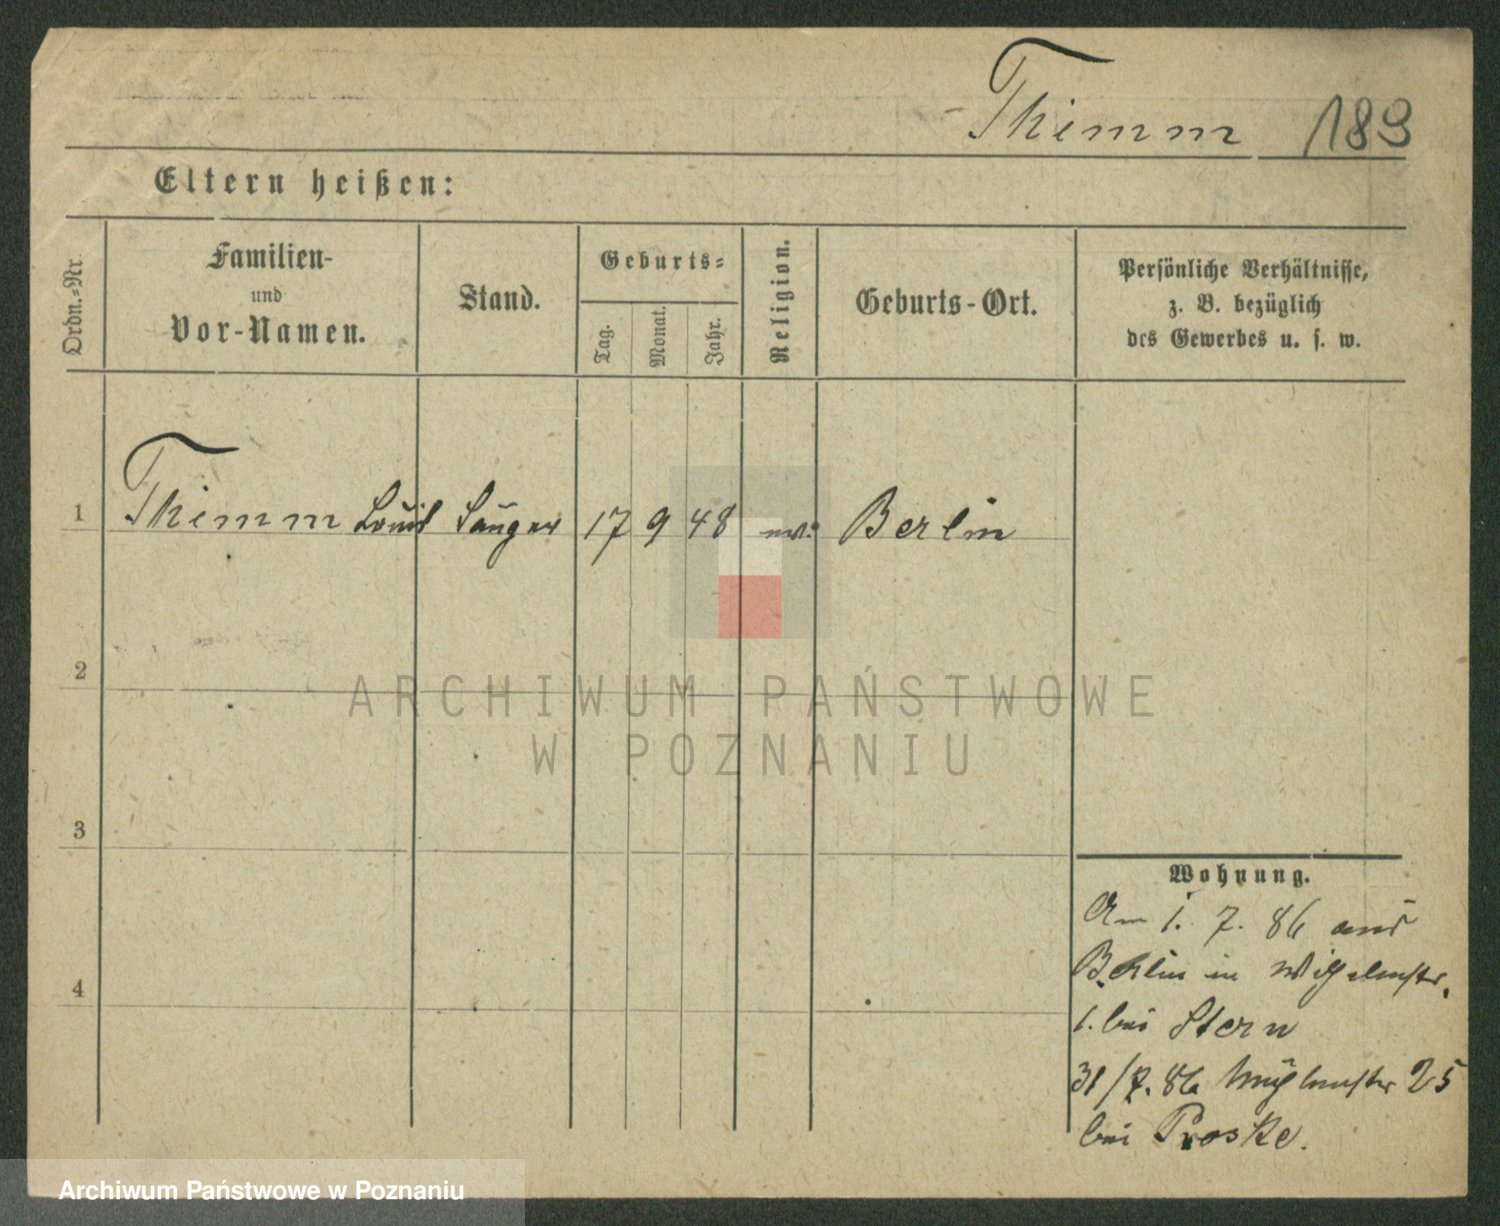 Thimm 189
Eltern heißen:
Ordn.=Nr.
Familien-
und
Vor-Namen.
Stand.
Geburts=
Tag.
Monat.
Jahr.
Religion.
Geburts-Ort.
Persönliche Verhältnisse,
z. B. bezüglich
des Gewerbes u. s. w.
1 Thimm Louis Sänger 17 9 48 ev. Berlin
2
ARCHIWUM PAŃSTWOWE
W POZNANIU
3
4
Wohnung.
Am 1. 7. 86 aus
Berlin in Wilhelmstr.
1. bei Stern
31/7. 86 25
bei Proske.
Archiwum Państwowe w Poznaniu